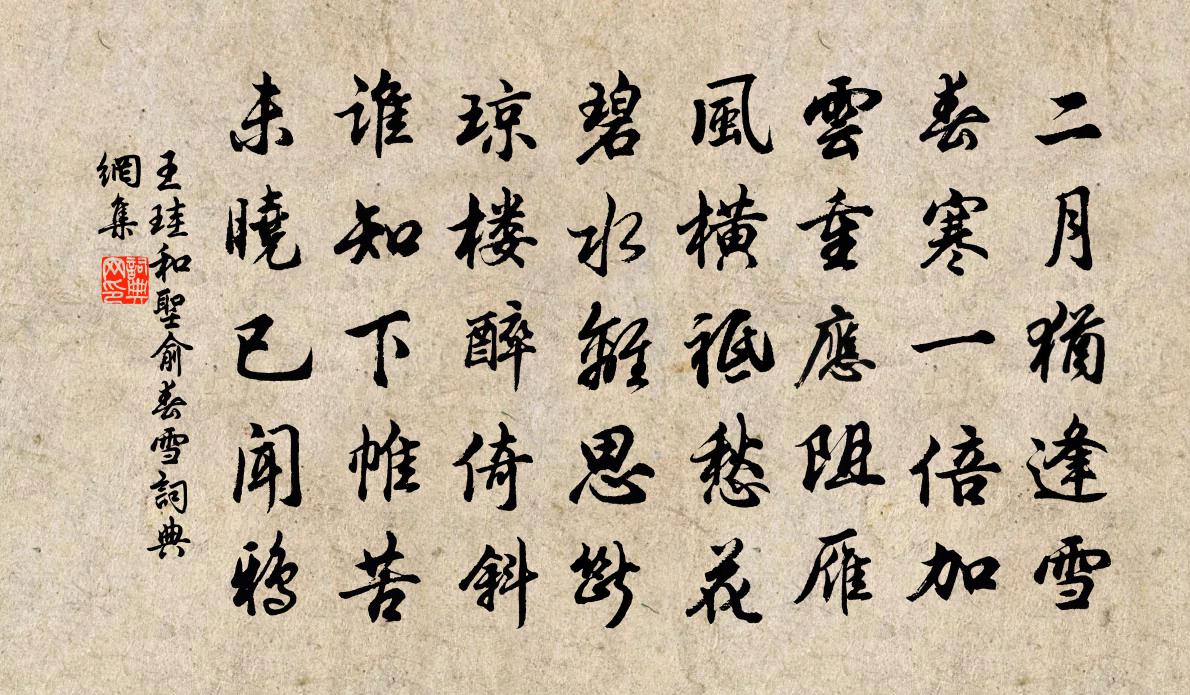 二月猶逢雪
春寒一倍加
雲重應阻雁
風橫祗愁花
碧水離思斷
琼楼醉倚斜
誰知下帷苦
未曉已聞鴉
王珪和聖俞春雪詞典
網集
詞典
网印